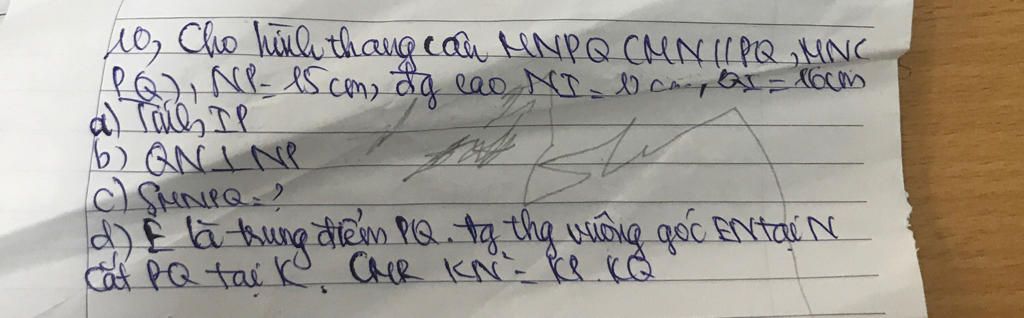 10, Cho hình thang cân MNPQ (MN // PQ, MN<
PQ), NP = 15 cm, đg cao NI = cm, QI = 16cm
a) Tính IP
b) QN ⊥ NP
c) SMNPQ = ?
d) E là trung điểm PQ. đg thg vuông góc EN tại N
cắt PQ tại K. CMR KN² = KP . KQ